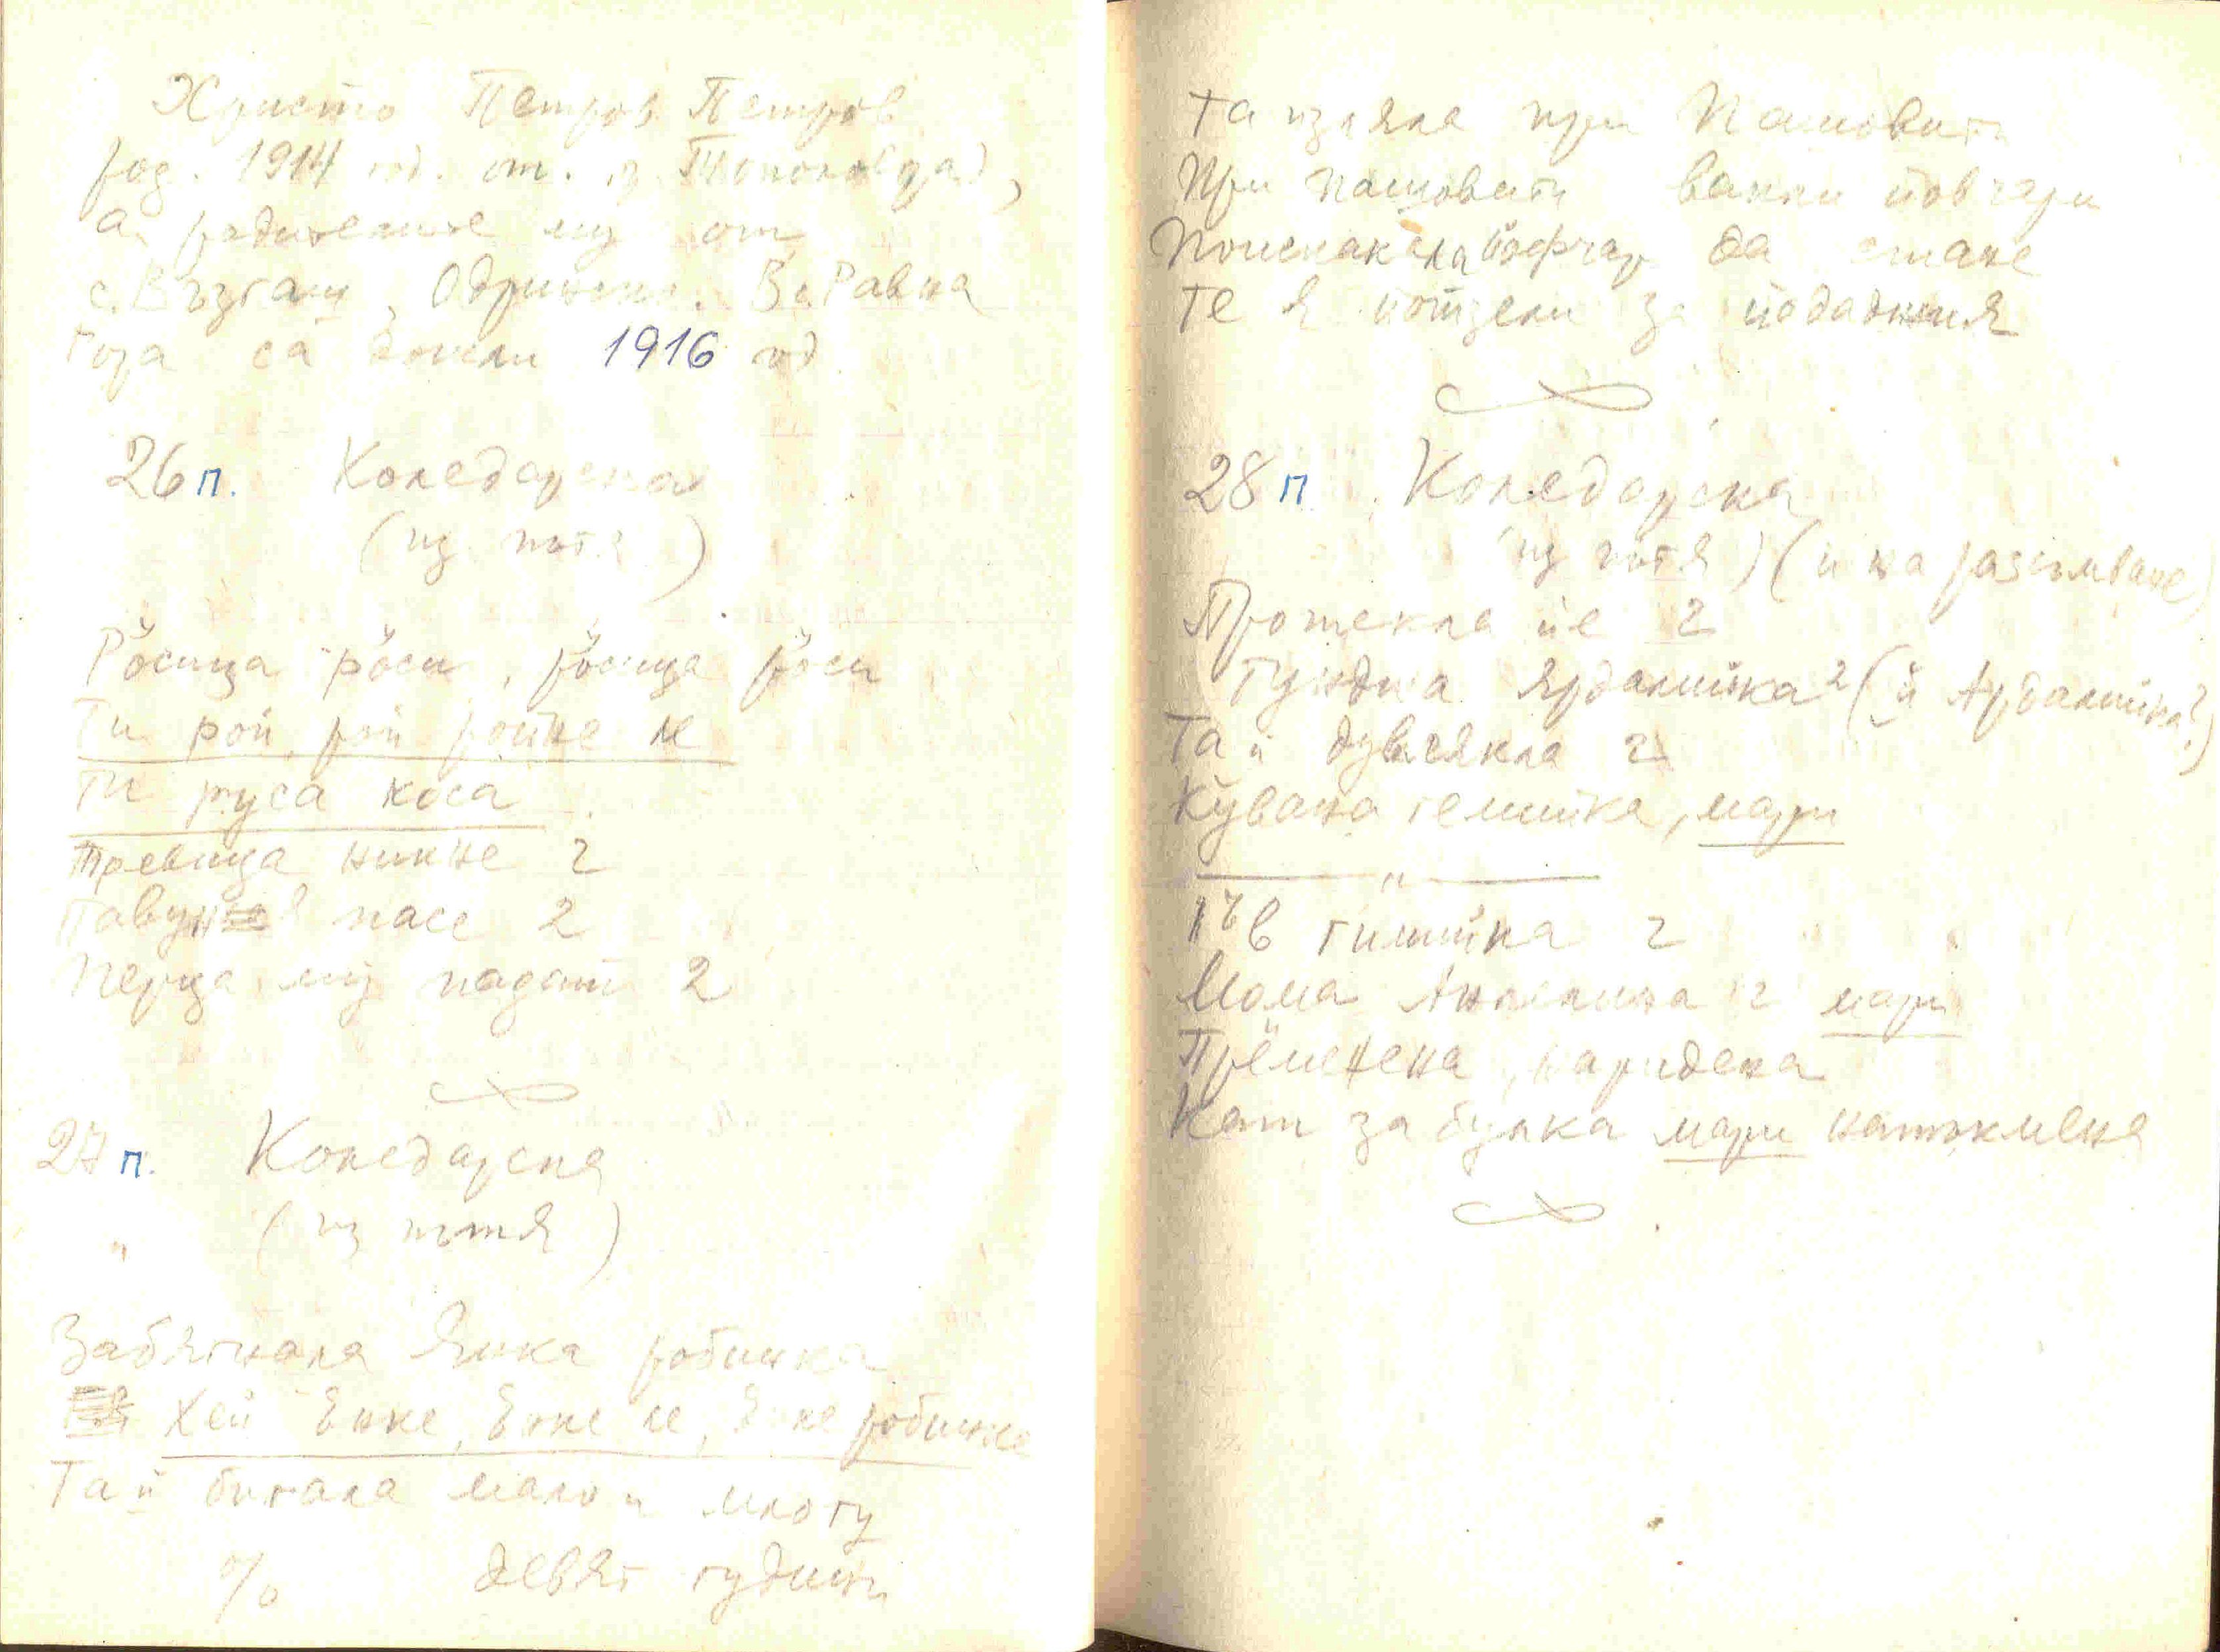 Христо Петров Петров
род. 1914 год. от. гр
а родителите му от
с. Възгаш, Одринско. В с. Равна
гора са дошли 1916 год
26 п. Коледарска
(из пътя)
Рöсица рöси, рöсица рöси
Ти рой, рой ройне ле
Ти руса коса
Тревица никне 2
пасе 2
Перца му падат 2
27 п. Коледарска
" (из пътя)
Забягнала Янка робинка
Хей Енке, Енке ле, Енке робинке
Та й бигала мало и многу
% девят гудини
та изляла при
При вакли йовчери
да стане
Те я за
28 п. Коледарска
(из пътя) (и на разсъмване)
Протекла йе 2
Тунджа Ярдалийка 2 (й Ардалийка?)
Та й дувлякла 2
Кувана гемийка, мари
"
Във гимийка 2
Мома Ангелина 2 мари
Прëменена, наридена
Кат за булка мари натъкмена